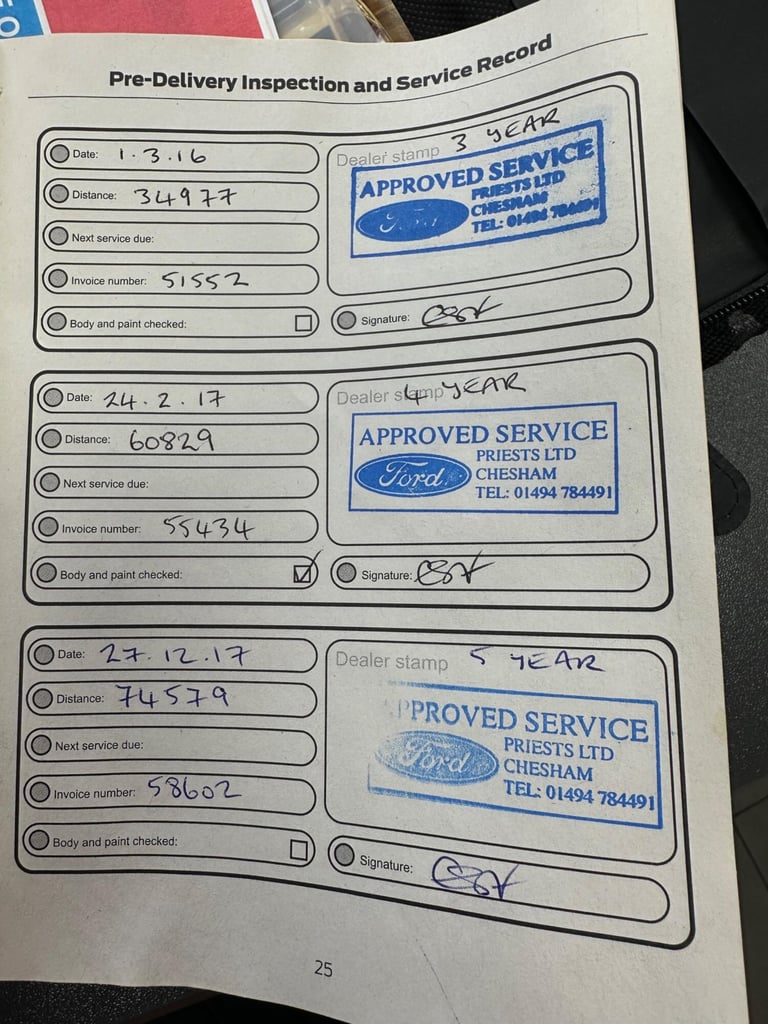 Pre-Delivery Inspection and Service Record
Date: 1.3.16
Distance: 34977
Next service due:
Invoice number: 51552
Body and paint checked:
Dealer stamp 3 YEAR
APPROVED SERVICE
Ford
PRIESTS LTD
CHESHAM
TEL: 01494 784491
Signature:
Date: 24.2.17
Distance: 60829
Next service due:
Invoice number: 55434
Body and paint checked:
Dealer stamp 4 YEAR
APPROVED SERVICE
Ford
PRIESTS LTD
CHESHAM
TEL: 01494 784491
Signature:
Date: 27.12.17
Distance: 74579
Next service due:
Invoice number: 58602
Body and paint checked:
Dealer stamp 5 YEAR
APPROVED SERVICE
Ford
PRIESTS LTD
CHESHAM
TEL: 01494 784491
Signature:
25